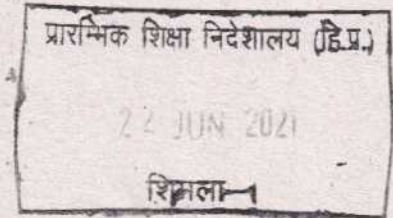 प्रारम्भिक शिक्षा निदेशालय (हि.प्र.)
22 JUN 2021
शिमला-1